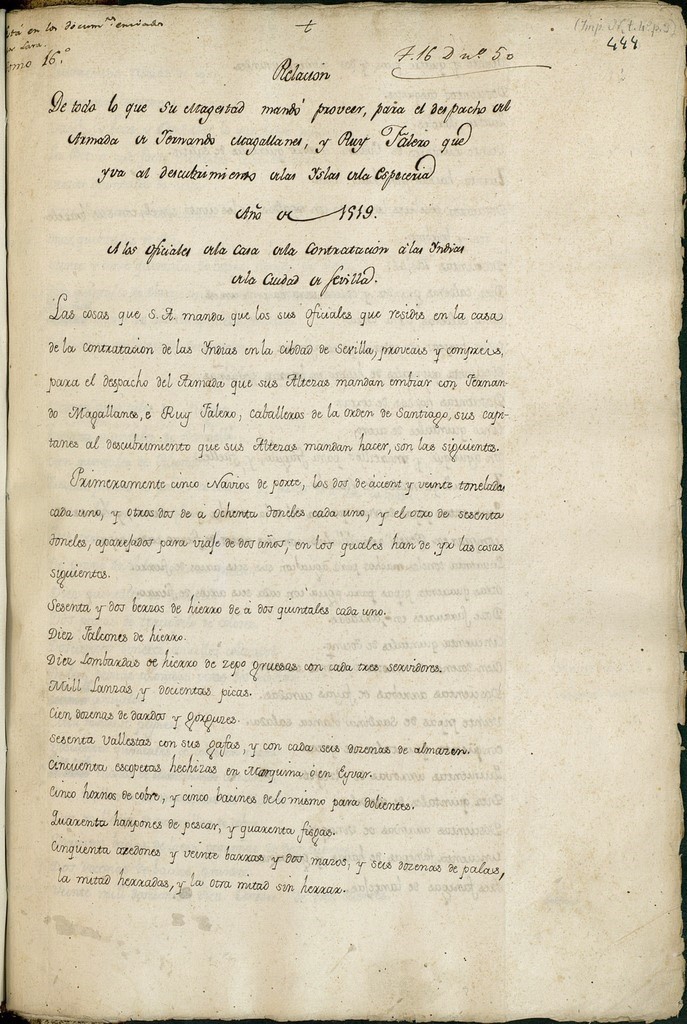 está en los docum.tos enviados
Lara.
tomo 16.º
+
(Imp. N. t. 4.º p. 3)
444
T. 16 D nº. 5.º
Relacion
De todo lo que Su Magestad mandó proveer, para el despacho del
Armada de Fernando Magallanes, y Ruy Falero que
yva al descubrimiento de las Yslas de la Especeria
Año de 1519.
A los Oficiales de la Casa de la Contratacion de las Yndias
de la Ciudad de Sevilla.
Las cosas que S. A. manda que los sus Oficiales que residis en la casa
de la contratacion de las Yndias en la cibdad de Sevilla, proveais y compreis,
para el despacho del Armada que sus Altezas mandan embiar con Fernan-
do Magallanes, é Ruy Falero, caballeros de la orden de Santiago, sus capi-
tanes al descubrimiento que sus Altezas mandan hacer, son las siguientes.
Primeramente cinco Navios de porte, los dos de á cient y veinte toneladas
cada uno, y otros dos de á ochenta toneles cada uno, y el otro de sesenta
toneles, aparejados para viaje de dos años, en los quales han de yr las cosas
siguientes.
Sesenta y dos berzos de hierro de á dos quintales cada uno.
Diez Falcones de hierro.
Diez Lombardas de hierro de zepo gruesas con cada tres servidores.
Mill Lanzas, y docientas picas.
Cien dozenas de dardos y gorguzes.
Sesenta Vallestas con sus gafas, y con cada seis dozenas de almazen.
Cincuenta escopetas hechizas en Marquina ó en Eyvar.
Cinco hornos de cobre, y cinco bacines de lo mismo para dolientes.
Quarenta harpones de pescar, y quarenta fisgas.
Cinqüenta azedones y veinte barras y dos mazos, y seis dozenas de palas,
la mitad herradas, y la otra mitad sin herrar.